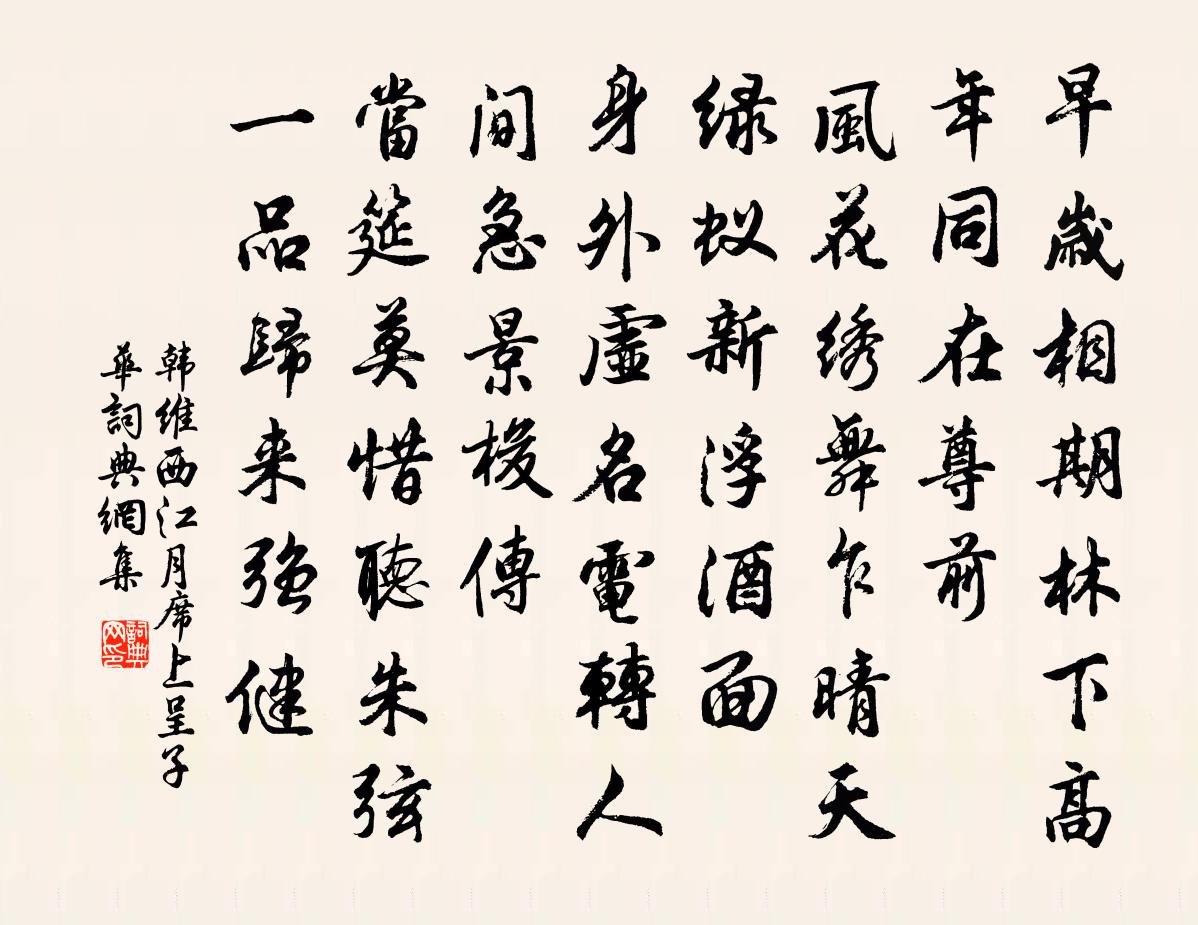 早歲相期林下高
年同在尊前
風花綉舞乍晴天
绿蚁新浮酒面
身外虛名電轉人
间急景梭傳
當筵莫惜聽朱弦
一品歸来強健
韩维西江月席上呈子
華詞典網集
詞典网印